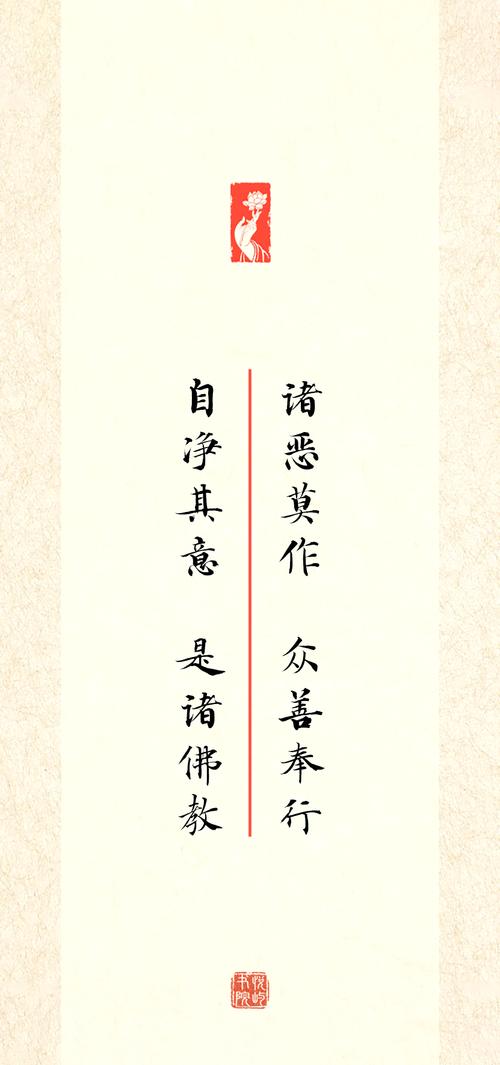 诸恶莫作 众善奉行
自净其意 是诸佛教
悦屿书院